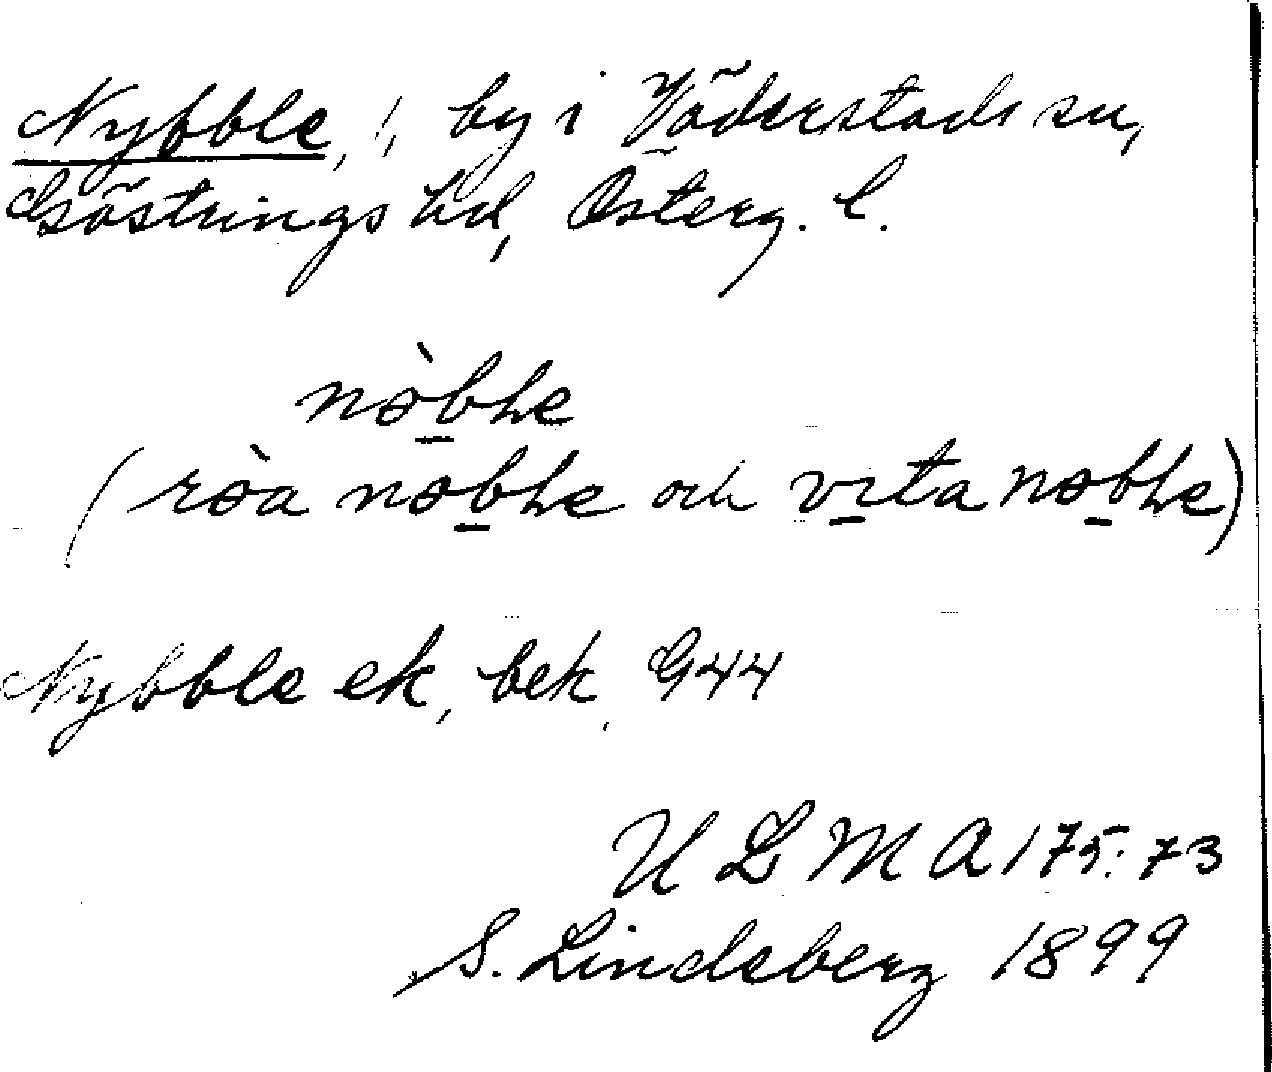 Nybble, !, by i Väderstads sn,
Göstrings hd, Österg. l.
nə̀bḷe
(rə̀a nəbḷe och vita nəbḷe)
Nybble ek, bek. G44
ULMA 175:73
S. Lindsberg 1899